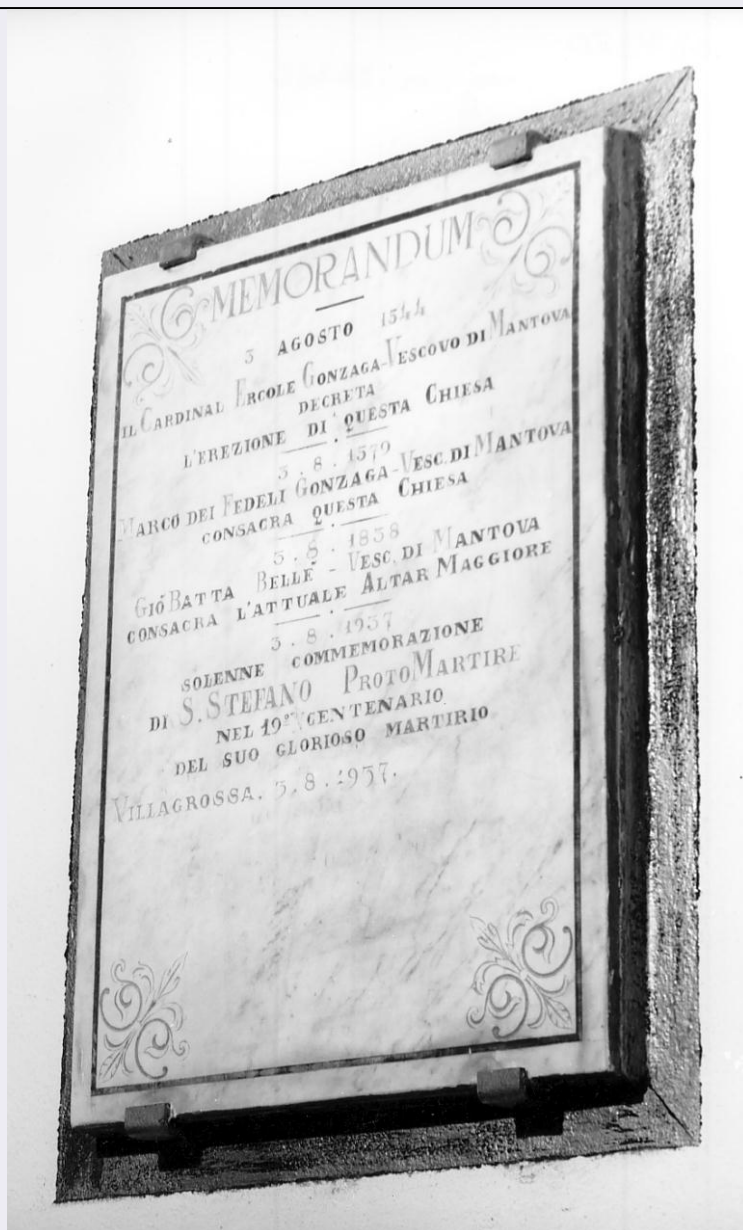 MEMORANDUM
3 AGOSTO 1544
IL CARDINAL ERCOLE GONZAGA-VESCOVO DI MANTOVA
DECRETA
L'EREZIONE DI QUESTA CHIESA
3.8.1579
MARCO DEI FEDELI GONZAGA-VESC. DI MANTOVA
CONSACRA QUESTA CHIESA
3.8.1838
GIO BATTA BELLE' - VESC. DI MANTOVA
CONSACRA L'ATTUALE ALTAR MAGGIORE
3.8.1937
SOLENNE COMMEMORAZIONE
DI S. STEFANO PROTOMARTIRE
NEL 19º CENTENARIO
DEL SUO GLORIOSO MARTIRIO
VILLAGROSSA. 3.8.1937.